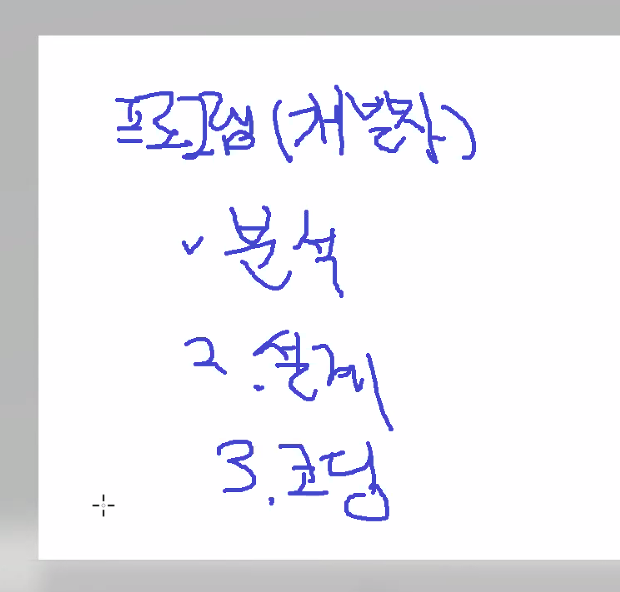 프로그램 (개발자)
1. 분석
2. 설계
3. 코딩